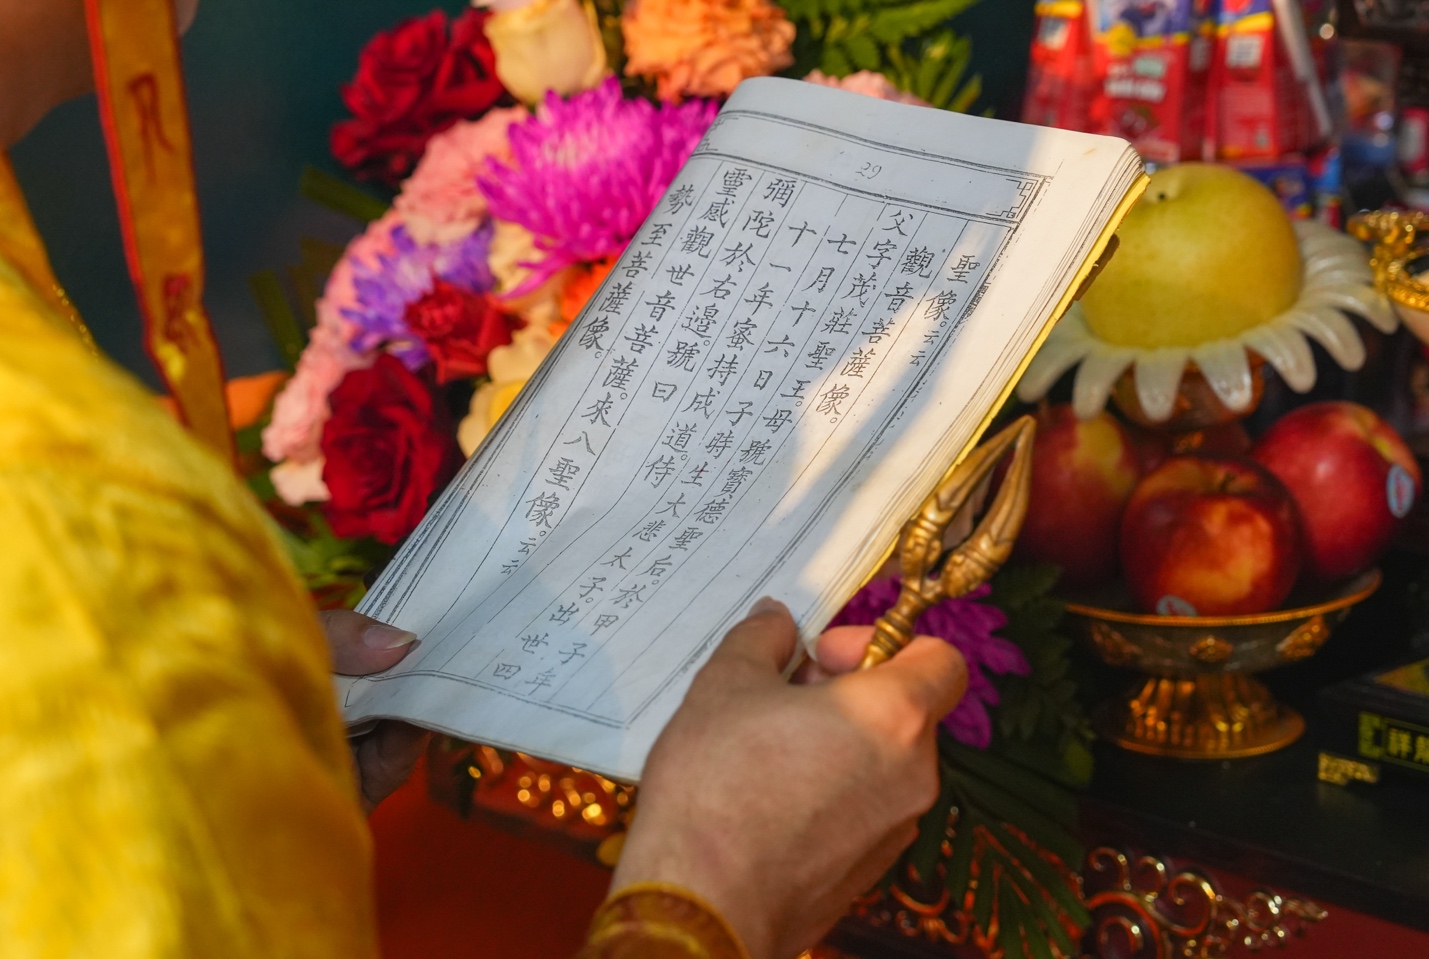 29
聖像。云云
觀音菩薩像。
父字茂莊聖王。母號寶德聖后。於甲子年
七月十六日子時生大悲太子。出世四
十一年蜜持成道。侍
彌陀於右邊。號曰
靈感觀世音菩薩。來八聖像。云云
勢至菩薩像。